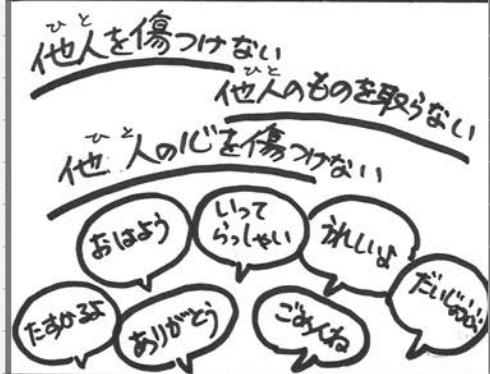 他人を傷つけない
ひと
他人のものを取らない
ひと
他人の心を傷つけない
ひと
おはよう
いって
らっしゃい
うれしいよ
だいじょうぶ
たすかるよ
ありがとう
ごめんね